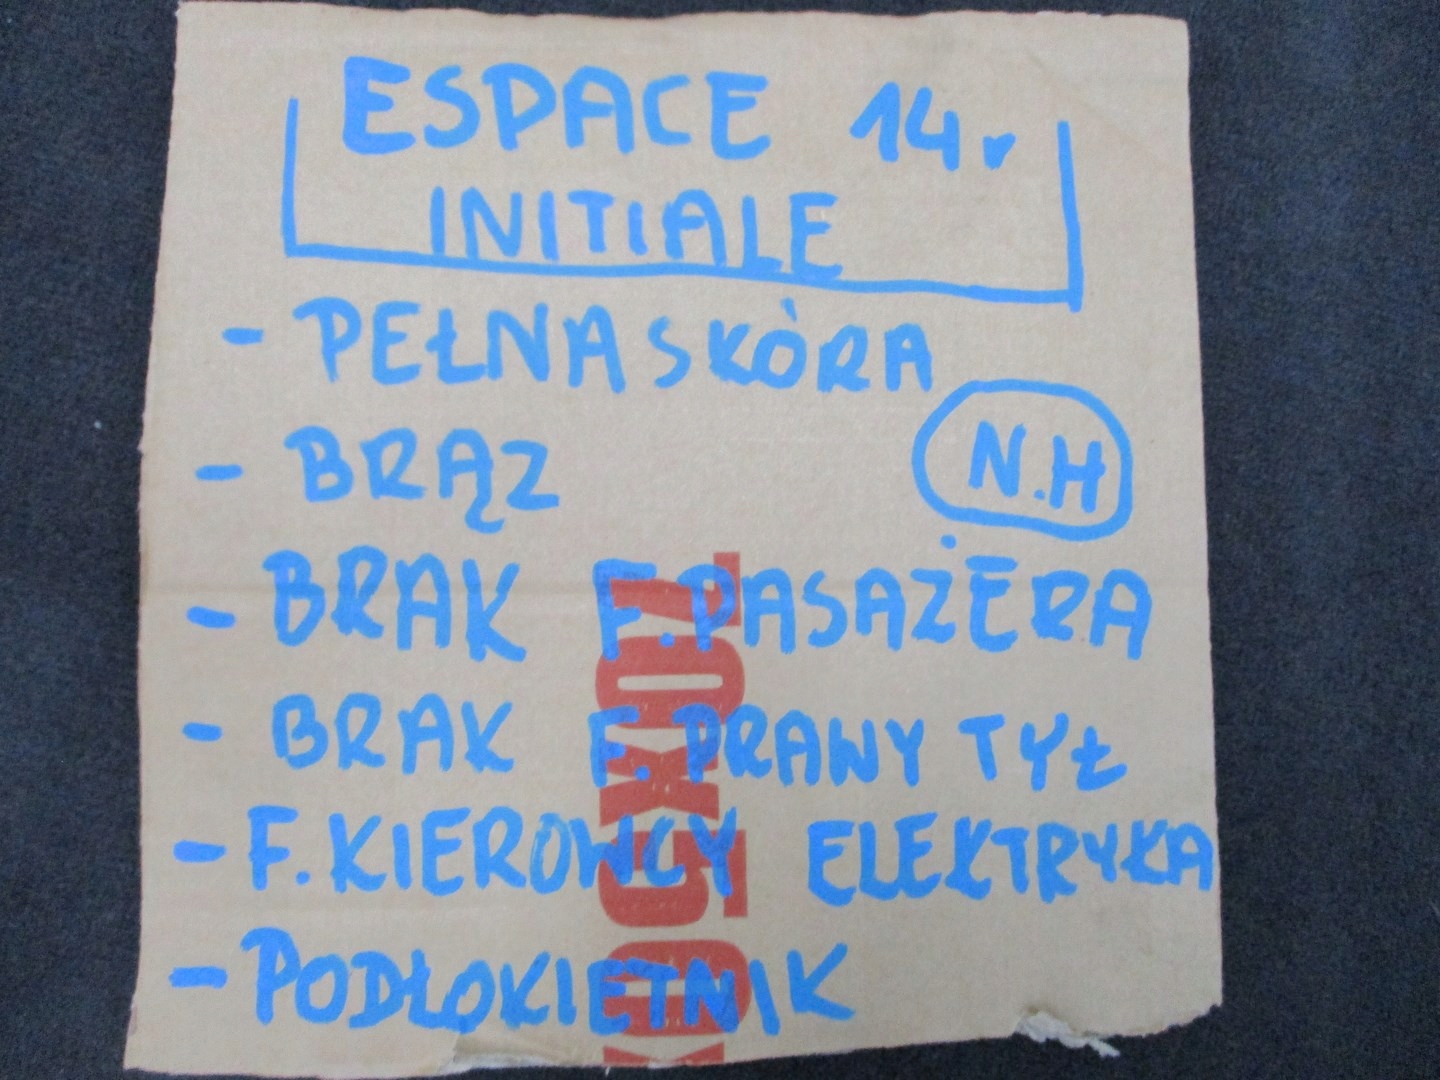 ESPACE 14r
INITIALE
- PEŁNA SKÒRA
- BRĄZ
N.H
- BRAK F. PASAŻERA
- BRAK F. PRAWY TYŁ
- F. KIEROWCY ELEKTRYKA
- PODŁOKIETNIK
70x50x